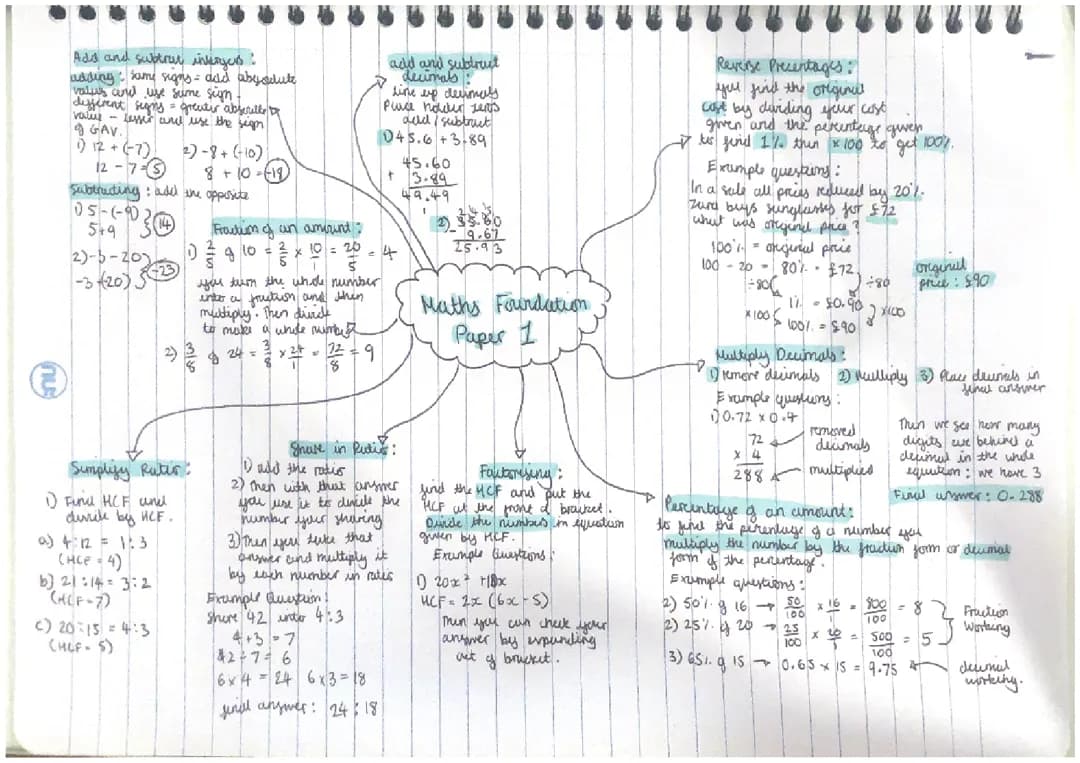 Maths Foundation
Paper 1
Add and subtract intergers :
adding : same signs = add absolute
values and use same sign.
different signs = greater absolute
value - lesser and use the sign
of GAV.
1) 12 + (-7)
12 - 7 = 5
2) -8 + (-10)
8 + 10 = -18
Subtracting : add the opposite
1) 5 - (-9)
5 + 9
14
2) -3 - 20
-3 + (-20)
-23
Fraction of an amount :
1) 2/5 of 10 = 2/5 × 10/1 = 20/5 = 4
you turn the whole number
into a fraction and then
multiply. Then divide
to make a whole number
2) 3/8 of 24 = 3/8 × 24/1 = 72/8 = 9
add and subtract
decimals :
line up decimals
Place holder zeros
add / subtract
1) 45.6 + 3.89
45.60
+ 3.89
49.49
1
2) 35.60
- 9.67
25.93
Reverse Precentages :
you find the original
cost by dividing your cost
given and the percentage given
to find 1% then ×100 to get 100%.
Example questions :
In a sale all prices reduced by 20%.
Zara buys sunglasses for £72
what was original price ?
100% = original price
100 - 20 = 80% = £72
÷80
÷80
1% = £0.90
×100
×100
100% = £90
original
price : £90
Multiply Decimals :
1) remove decimals 2) Multiply 3) Place decimals in
final answer
Example questions :
1) 0.72 × 0.4
72
× 4
288
removed
decimals
multiplied
Then we see how many
digits are behind a
decimal in the whole
equation : we have 3
Final answer : 0.288
Simplify Ratio :
1) Find HCF and
divide by HCF.
a) 4:12 = 1:3
(HCF = 4)
b) 21:14 = 3:2
(HCF = 7)
c) 20:15 = 4:3
(HCF = 5)
Share in Ratio :
1) add the ratios
2) Then with that answer
you use it to divide the
number your sharing
3) Then you take that
answer and multiply it
by each number in ratio
Example Question :
Share 42 into 4:3
4+3 = 7
42÷7 = 6
6×4 = 24 6×3 = 18
final answer : 24:18
Factorising :
find the HCF and put the
HCF at the front of bracket.
Divide the numbers in equation
given by HCF.
Example Questions :
HCF = 2x (6x - 5)
Then you can check your
answer by expanding
out of bracket.
Percentage of an amount :
to find the percentage of a number you
multiply the number by the fraction form or decimal
form of the percentage.
Example questions :
2) 50% of 16 → 50/100 × 16/1 = 800/100 = 8
2) 25% of 20 → 25/100 × 20/1 = 500/100 = 5
Fraction
Working
3) 65% of 15 → 0.65 × 15 = 9.75
decimal
working.